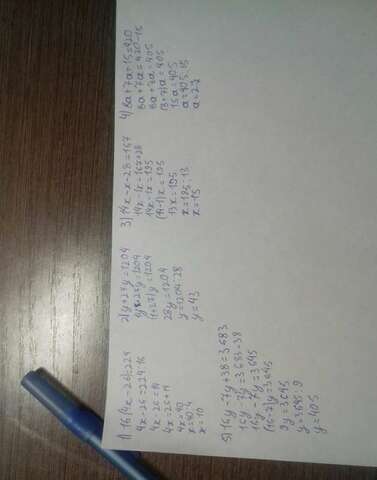 1) 16(4x-26)=224
4x-26=224:16
4x-26=14
4x=26+14
4x=40
x=40:4
x=10
2) y+27y=1204
y+27y=1204
(1+27)y=1204
28y=1204
y=1204:28
y=43
3) 14x-x-28=167
14x-1x=167+28
14x-1x=195
(14-1)x=195
13x=195
x=195:13
x=15
4) 8a+7a+15=420
8a+7a=420-15
8a+7a=405
(8+7)a=405
15a=405
a=405:15
a=27
5) 16y-7y+38=3683
16y-7y=3683-38
16y-7y=3645
(16-7)y=3645
9y=3645
y=3645:9
y=405